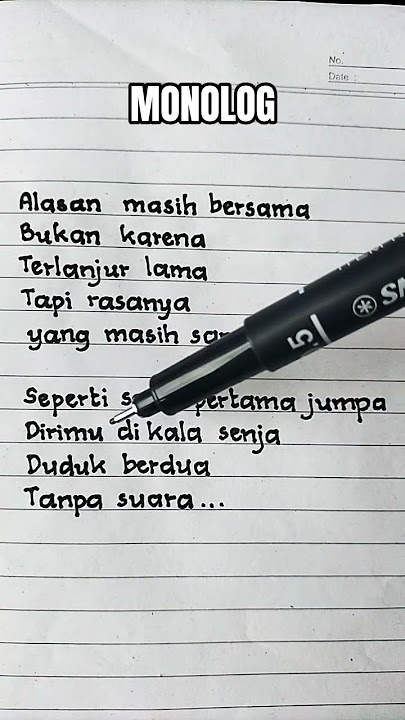 No.
Date :
MONOLOG
Alasan masih bersama
Bukan karena
Terlanjur lama
Tapi rasanya
yang masih
Seperti pertama jumpa
Dirimu di kala senja
Duduk berdua
Tanpa suara...
5